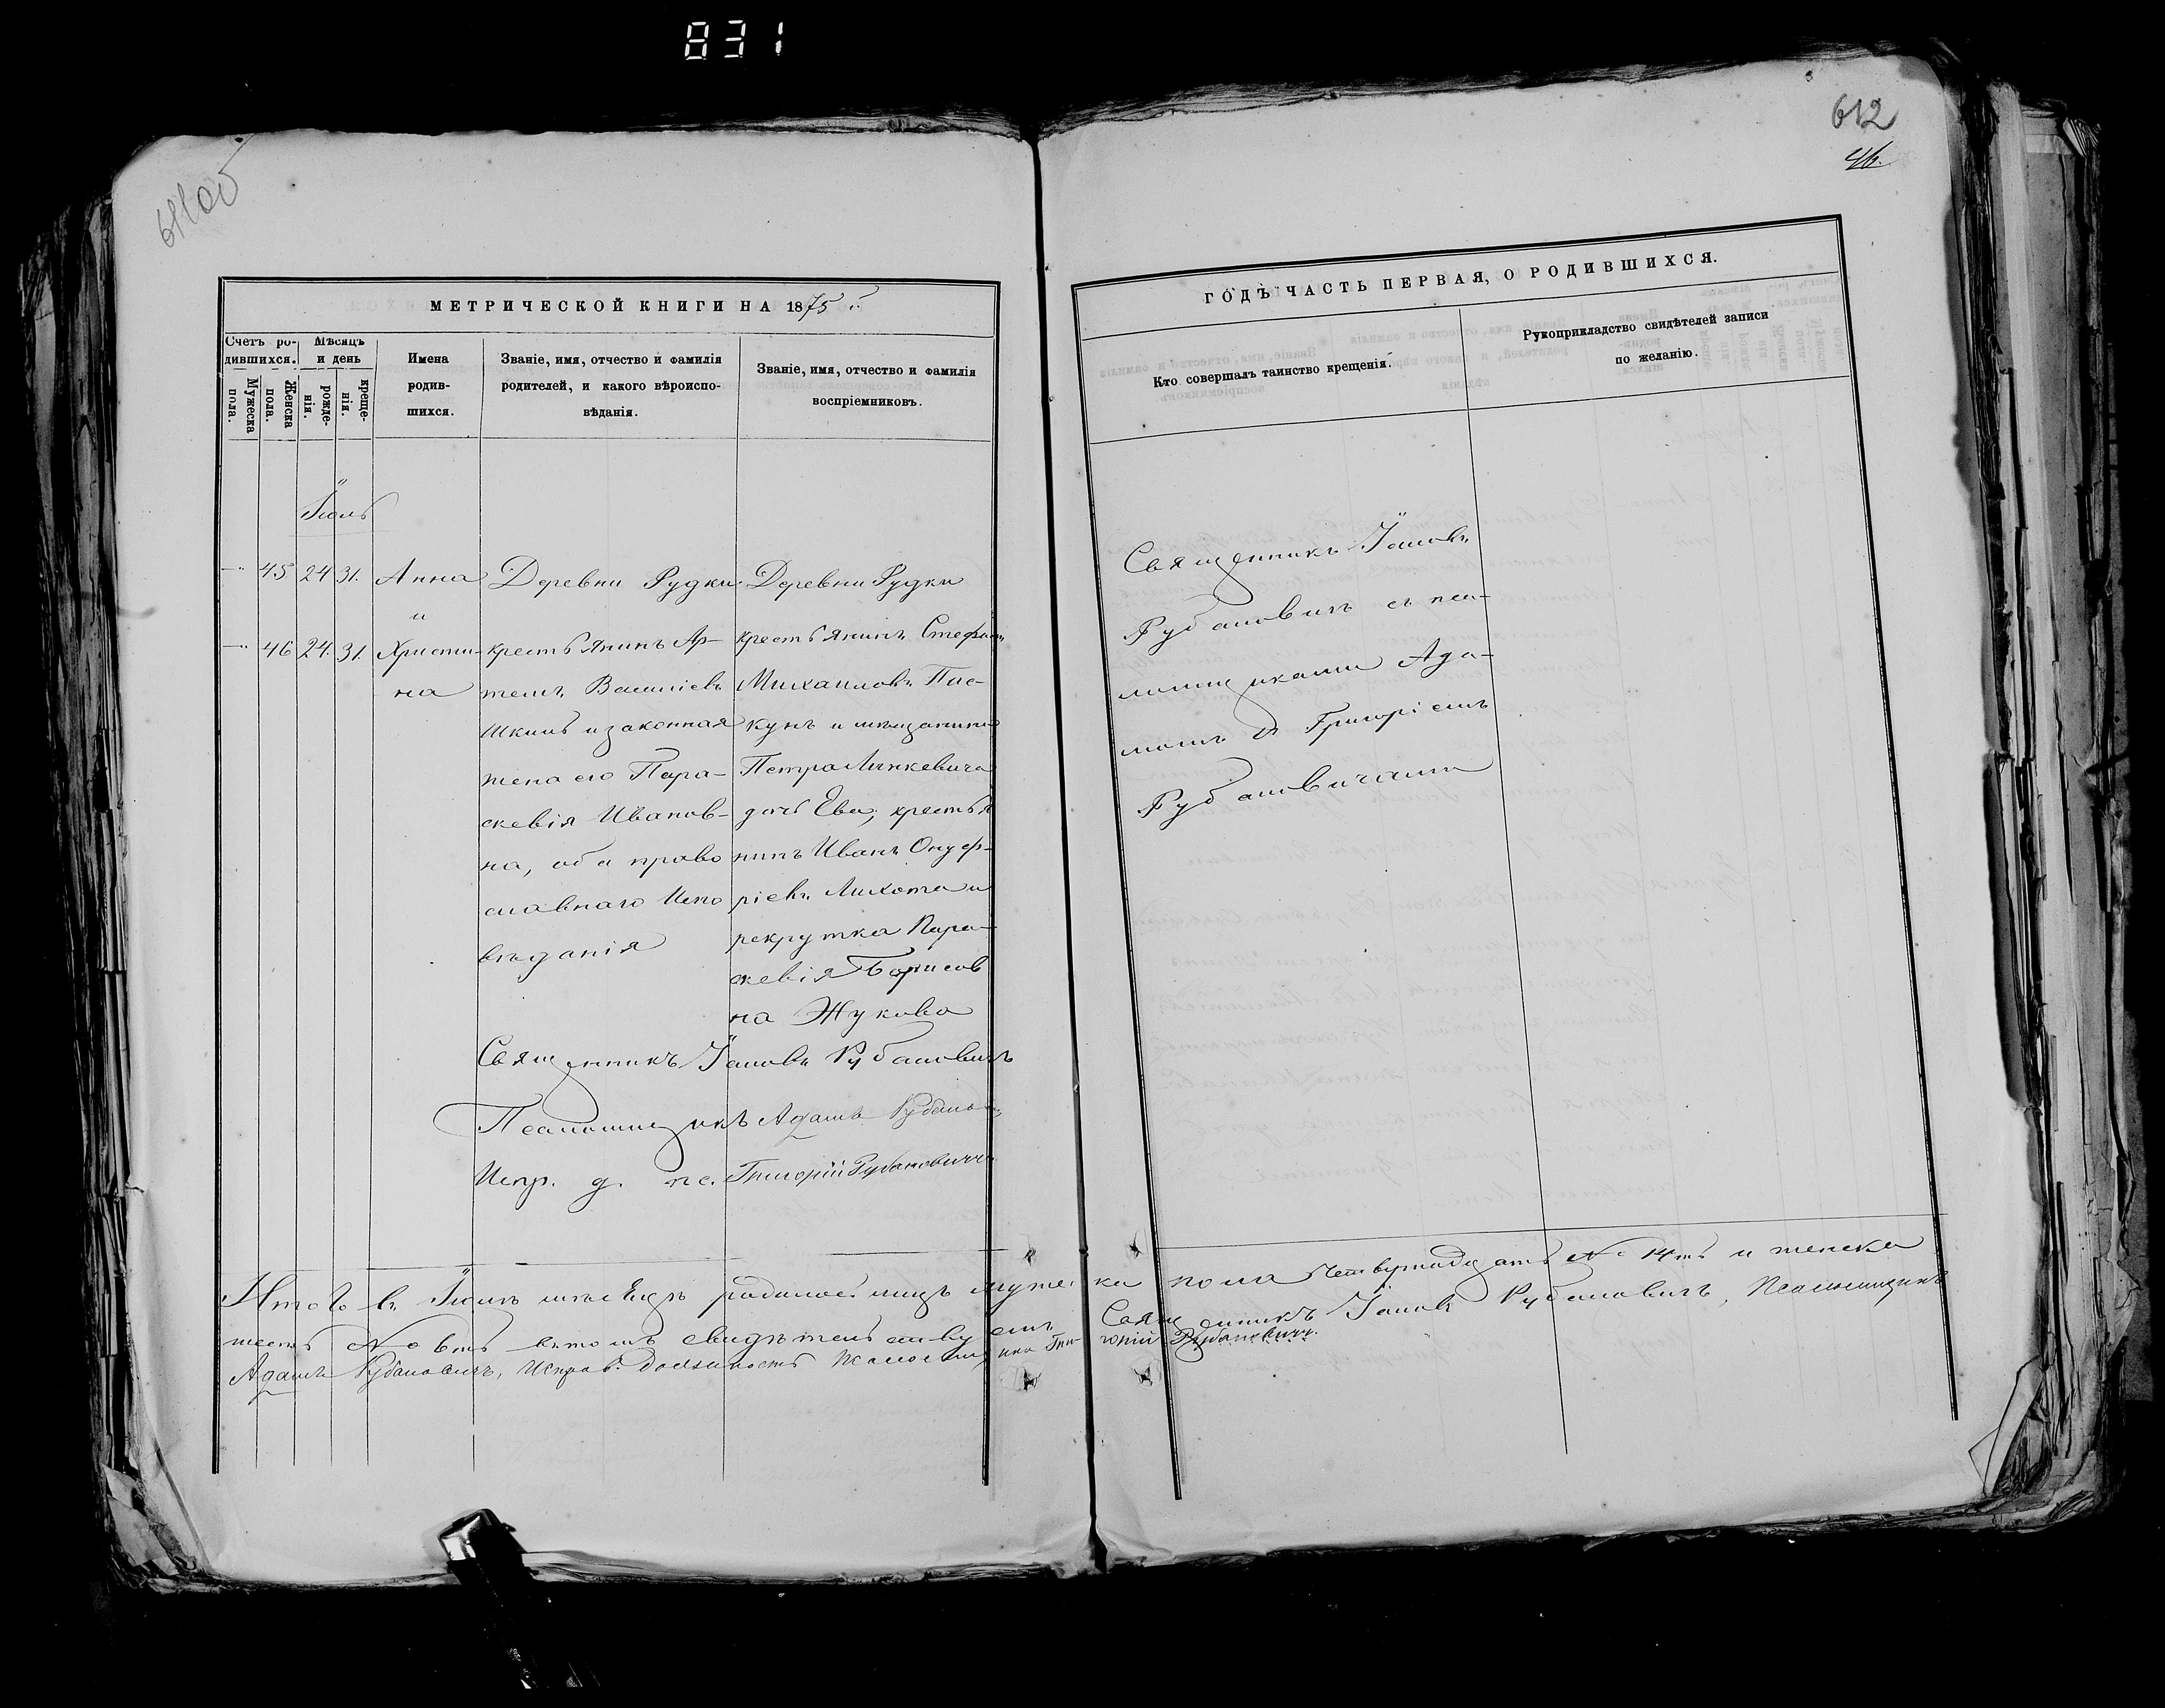 831
612
46.
611об
МЕТРИЧЕСКОЙ КНИГИ НА 1875
ГОДЪ ЧАСТЬ ПЕРВАЯ, О РОДИВШИХСЯ.
Счетъ ро-
дившихся.
Мужеска
пола.
Женска
пола.
Мѣсяцъ
и день
рожде-
нія.
креще-
нія.
Имена
родив-
шихся.
Званіе, имя, отчество и фамилія
родителей, и какого вѣроиспо-
вѣданія.
Званіе, имя, отчество и фамилія
воспріемниковъ.
Кто совершалъ таинство крещенія.
Рукоприкладство свидѣтелей записи
по желанію.
Іюль
— 45 24 31. Анна
и
— 46 24. 31. Христи-
на
Деревни Рудки
крестьянинъ Ар-
темъ Василіевъ
и законная
жена его Пара-
скевія Иванов-
на, оба право
славнаго испо
вѣданія
Деревни Рудки
крестьянинъ Стефанъ
Михаиловъ Пис-
кунъ и мѣщанина
Петра Линкевича
дочь Ева, крестья
нинъ Иванъ Онуф-
ріевъ Лихота и
рекрутка Пара-
скевія Борисов
на Жукова
Священникъ Іаковъ
Рубановичъ съ пса-
ломщиками Ада-
момъ и Григоріемъ
Рубановичами
Священникъ Іаковъ Рубановичъ
Псаломщикъ Адамъ Рубановичъ
Испр. д. пс. Григорій Рубановичъ
Итого въ Іюлѣ мѣсяцѣ родилось мужеска пола четырнадцать № 14ть и женска
шесть № 6ть въ томъ свидѣтельствуемъ Священникъ Іаковъ Рубановичъ, Псаломщикъ
Адамъ Рубановичъ, Исправ. должность псаломщика Григорій Рубановичъ.